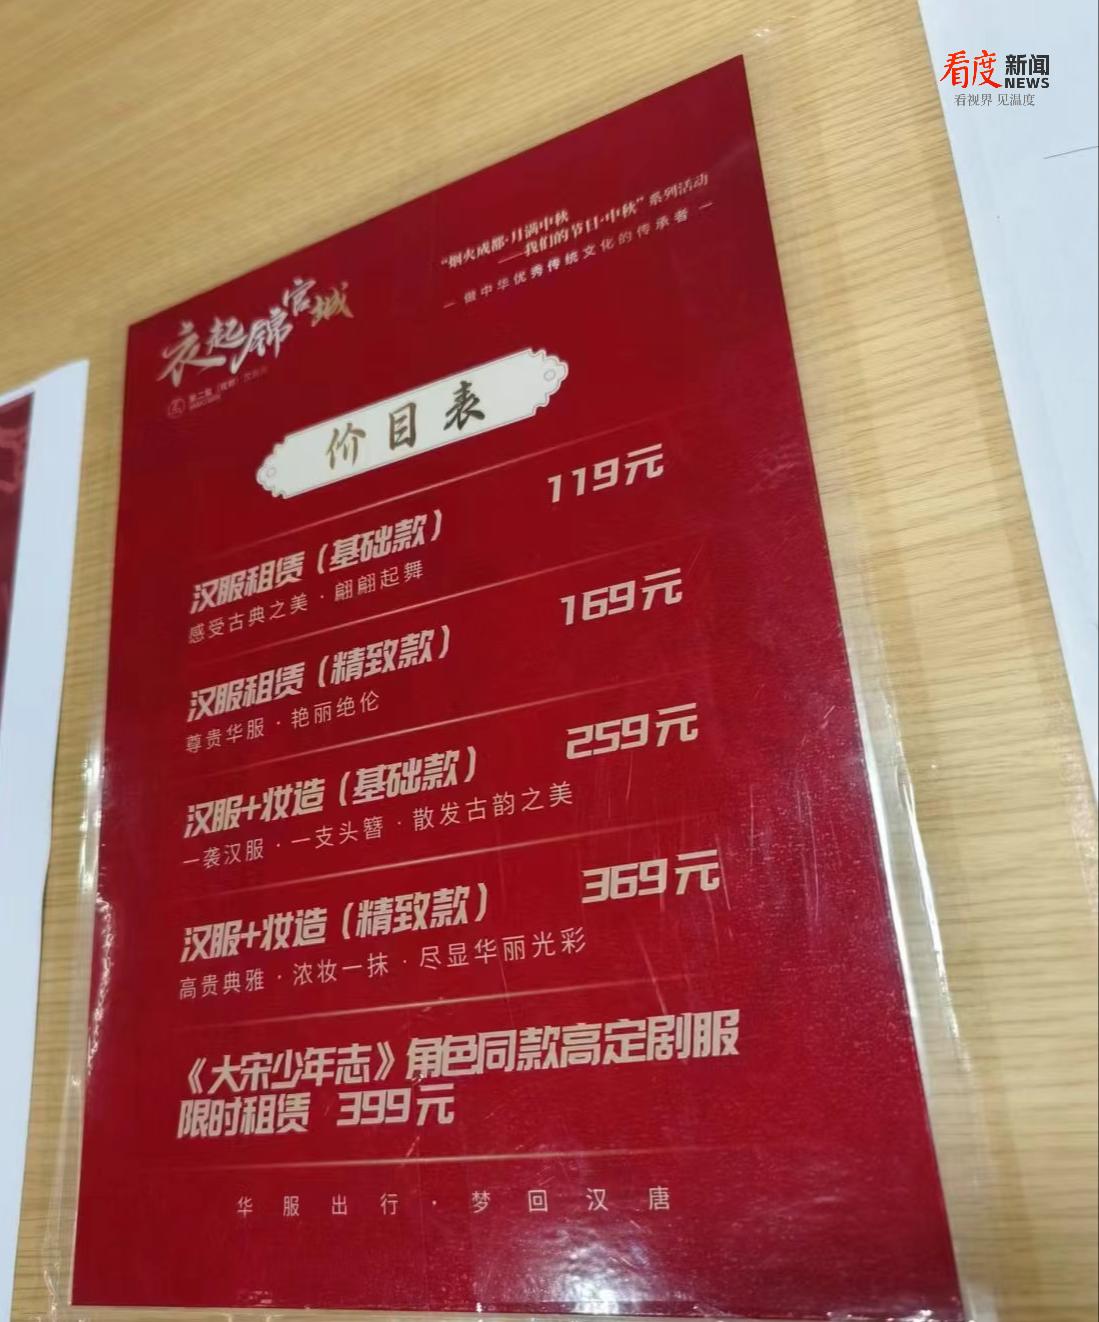 看度新闻
NEWS
看视界 见温度
“烟火成都·月满中秋
——我们的节日·中秋”系列活动
— 做中华优秀传统文化的传承者 —
衣起锦官城
价目表
汉服租赁（基础款） 119元
感受古典之美·翩翩起舞
汉服租赁（精致款） 169元
尊贵华服·艳丽绝伦
汉服+妆造（基础款） 259元
一袭汉服·一支头簪·散发古韵之美
汉服+妆造（精致款） 369元
高贵典雅·浓妆一抹·尽显华丽光彩
《大宋少年志》角色同款高定剧服
限时租赁 399元
华服出行·梦回汉唐